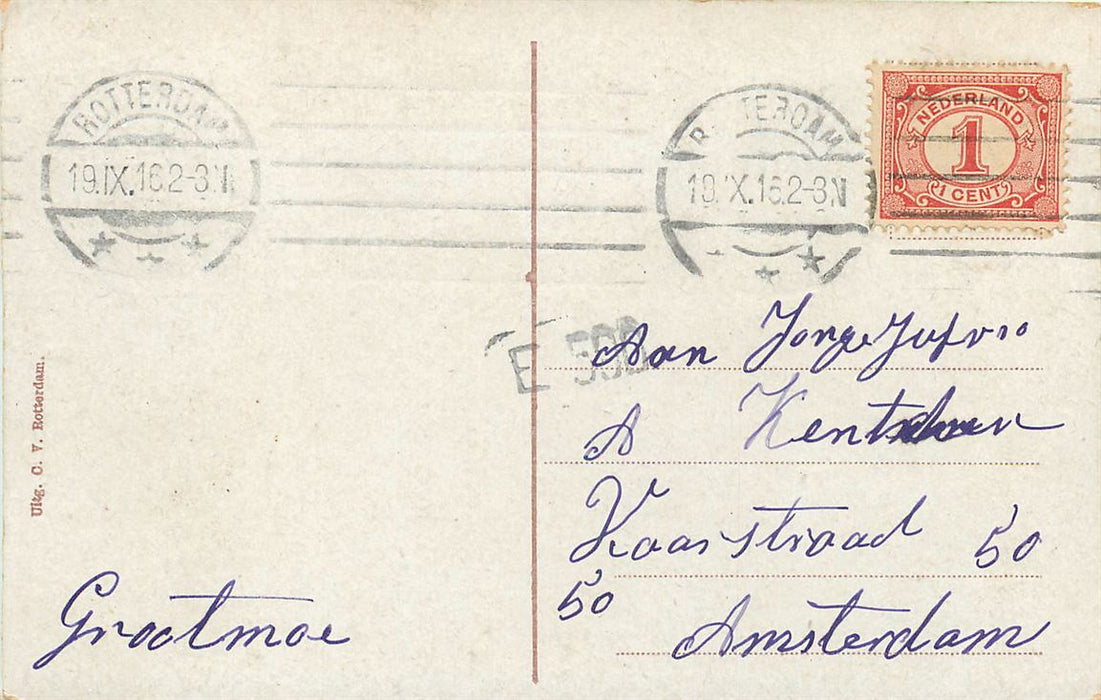 ROTTERDAM
19.IX.16.2-3N
ROTTERDAM
19.IX.16.2-3N
NEDERLAND
1
1 CENT
E 598
Aan Jonge Jufvro
A
Kaasstraad 50
50
Amsterdam
Grootmoe
Uitg. C. V. Rotterdam.